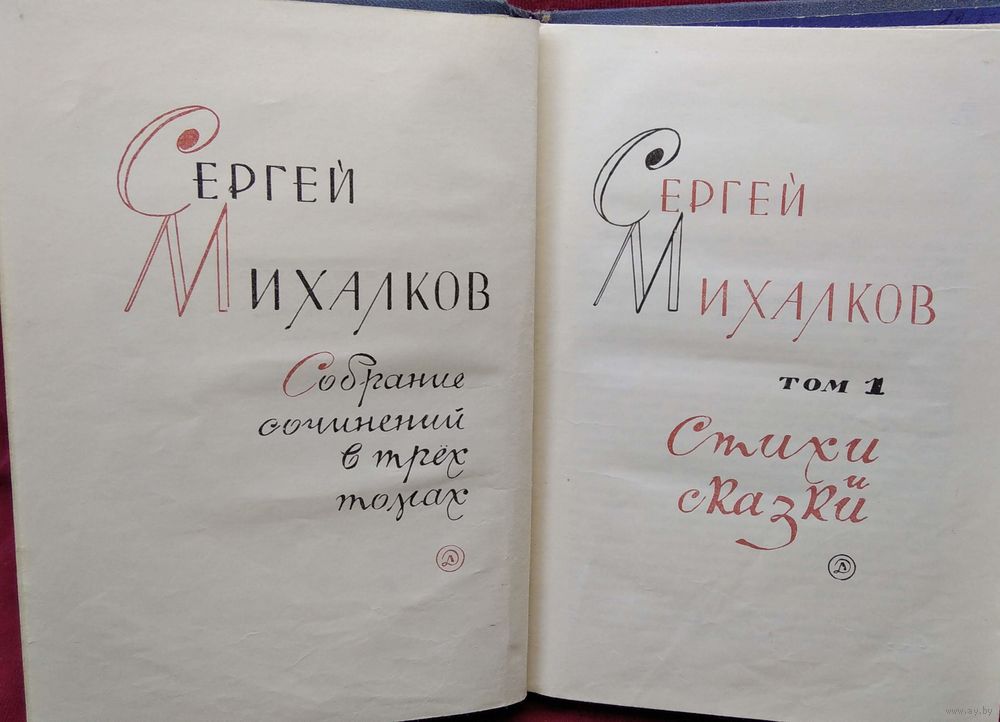 СЕРГЕЙ
МИХАЛКОВ
Собрание
сочинений
в трёх
томах
Д
СЕРГЕЙ
МИХАЛКОВ
ТОМ 1
Стихи
и
сказки
Д
www.ay.by